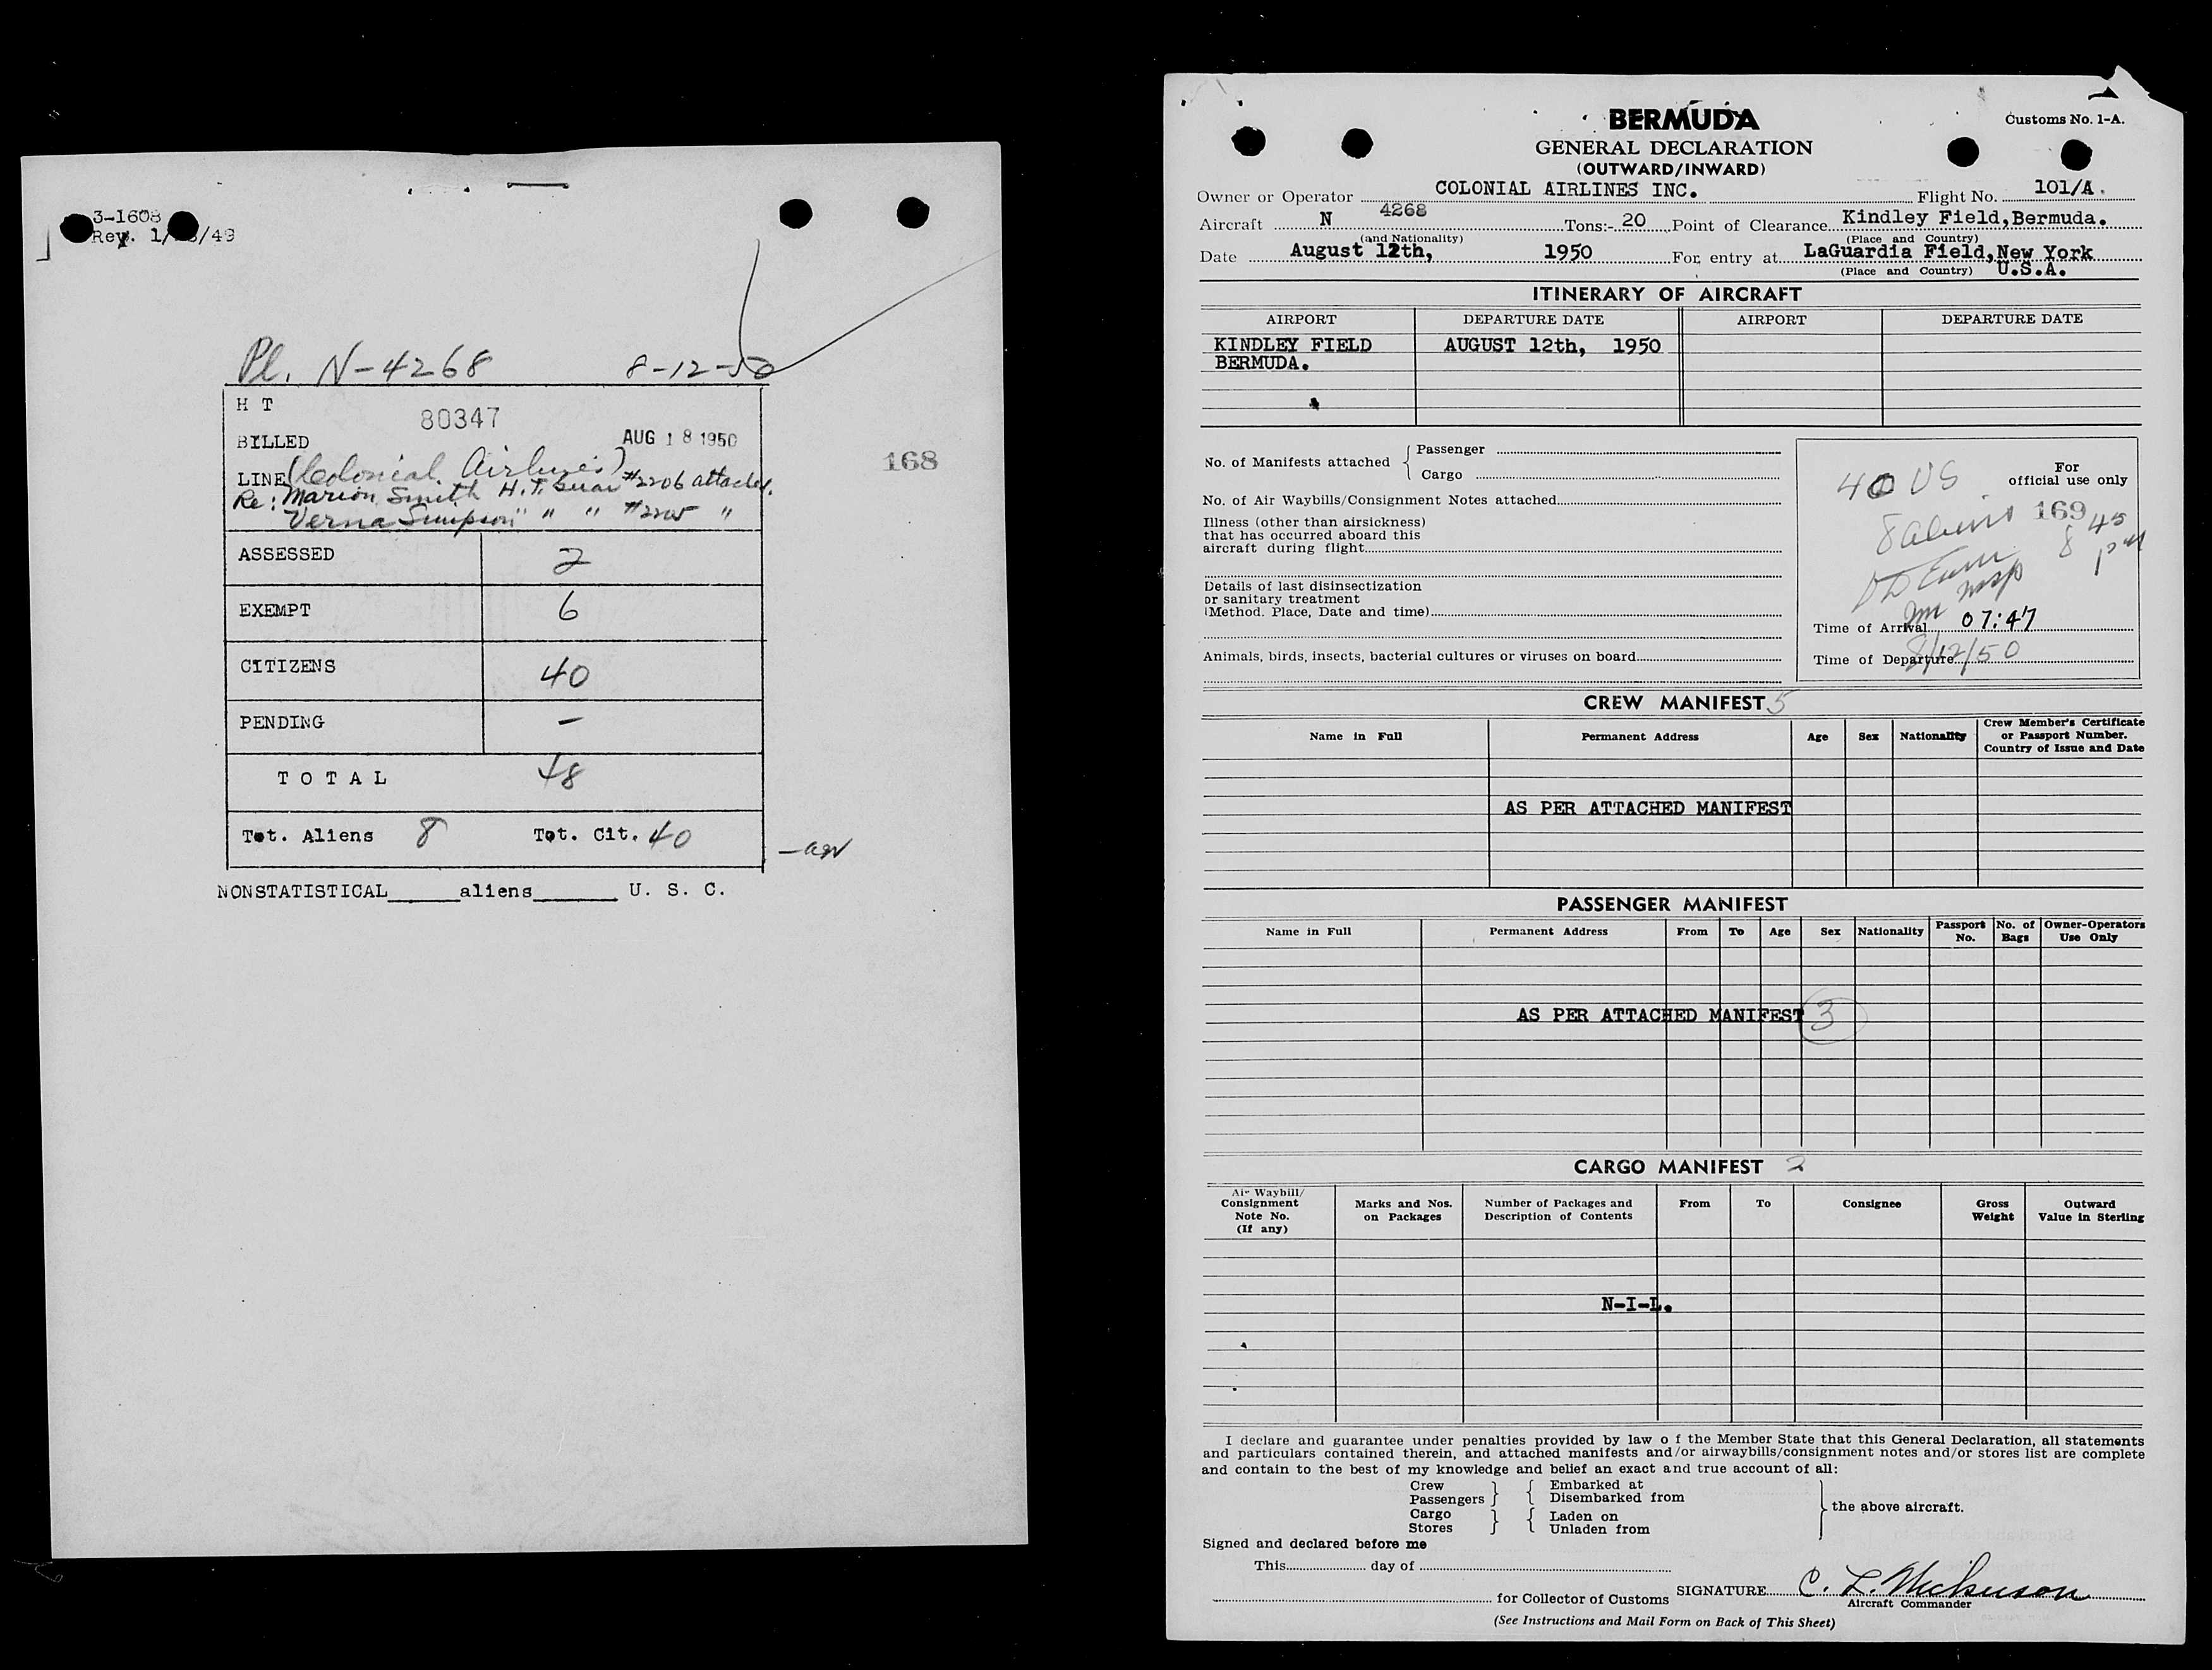 3-1608
Rev. 1/ /49
Pl. N-4268 8-12-50
H T
80347
BILLED AUG 18 1950
LINE (Colonial Airlines)
Re: Marion Smith H.T. Guar #2206 attached.
Verna Simpson " " " #2205 "
168
ASSESSED 2
EXEMPT 6
CITIZENS 40
PENDING –
TOTAL 48
Tot. Aliens 8 Tot. Cit. 40
NONSTATISTICAL_____aliens______ U. S. C.
BERMUDA
Customs No. 1-A.
GENERAL DECLARATION
(OUTWARD/INWARD)
Owner or Operator COLONIAL AIRLINES INC. Flight No. 101/A.
Aircraft N 4268 Tons:- 20 Point of Clearance Kindley Field, Bermuda.
(and Nationality) (Place and Country)
Date August 12th, 1950 For entry at LaGuardia Field, New York
(Place and Country) U.S.A.
ITINERARY OF AIRCRAFT
AIRPORT DEPARTURE DATE AIRPORT DEPARTURE DATE
KINDLEY FIELD AUGUST 12th, 1950
BERMUDA.
No. of Manifests attached { Passenger
Cargo
No. of Air Waybills/Consignment Notes attached
Illness (other than airsickness)
that has occurred aboard this
aircraft during flight
Details of last disinsectization
or sanitary treatment
(Method. Place, Date and time)
Animals, birds, insects, bacterial cultures or viruses on board
For
official use only
40 US
8 aliens 169
8 45
pm
Insp
Time of Arrival 07:47
Time of Departure 8/12/50
CREW MANIFEST 5
Name in Full Permanent Address Age Sex Nationality Crew Member's Certificate
or Passport Number.
Country of Issue and Date
AS PER ATTACHED MANIFEST
PASSENGER MANIFEST
Name in Full Permanent Address From To Age Sex Nationality Passport No. No. of Bags Owner-Operators Use Only
AS PER ATTACHED MANIFEST 3
CARGO MANIFEST 2
Air Waybill/
Consignment
Note No.
(If any)
Marks and Nos.
on Packages
Number of Packages and
Description of Contents
From To Consignee Gross
Weight
Outward
Value in Sterling
N-I-L.
I declare and guarantee under penalties provided by law o f the Member State that this General Declaration, all statements
and particulars contained therein, and attached manifests and/or airwaybills/consignment notes and/or stores list are complete
and contain to the best of my knowledge and belief an exact and true account of all:
Crew } { Embarked at
Passengers } { Disembarked from
Cargo } { Laden on
Stores } { Unladen from
} the above aircraft.
Signed and declared before me
This day of
for Collector of Customs SIGNATURE C. L. Nickerson
Aircraft Commander
(See Instructions and Mail Form on Back of This Sheet)